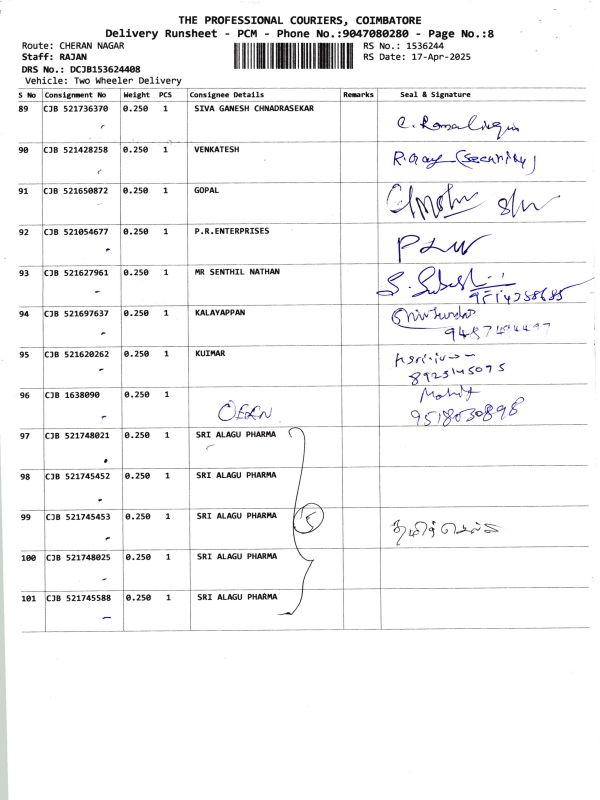 THE PROFESSIONAL COURIERS, COIMBATORE
Delivery Runsheet - PCM - Phone No.:9047080280 - Page No.:8
Route: CHERAN NAGAR RS No.: 1536244
Staff: RAJAN RS Date: 17-Apr-2025
DRS No.: DCJB153624408
Vehicle: Two Wheeler Delivery
S No Consignment No Weight PCS Consignee Details Remarks Seal & Signature
89 CJB 521736370 0.250 1 SIVA GANESH CHNADRASEKAR
90 CJB 521428258 0.250 1 VENKATESH (Security)
91 CJB 521650872 0.250 1 GOPAL
92 CJB 521054677 0.250 1 P.R.ENTERPRISES
93 CJB 521627961 0.250 1 MR SENTHIL NATHAN
94 CJB 521697637 0.250 1 KALAYAPPAN
95 CJB 521620262 0.250 1 KUIMAR
8925145075
96 CJB 1638090 0.250 1 Mohit
9518030898
97 CJB 521748021 0.250 1 SRI ALAGU PHARMA
98 CJB 521745452 0.250 1 SRI ALAGU PHARMA
99 CJB 521745453 0.250 1 SRI ALAGU PHARMA தமிழ்செல்வி
100 CJB 521748025 0.250 1 SRI ALAGU PHARMA
101 CJB 521745588 0.250 1 SRI ALAGU PHARMA